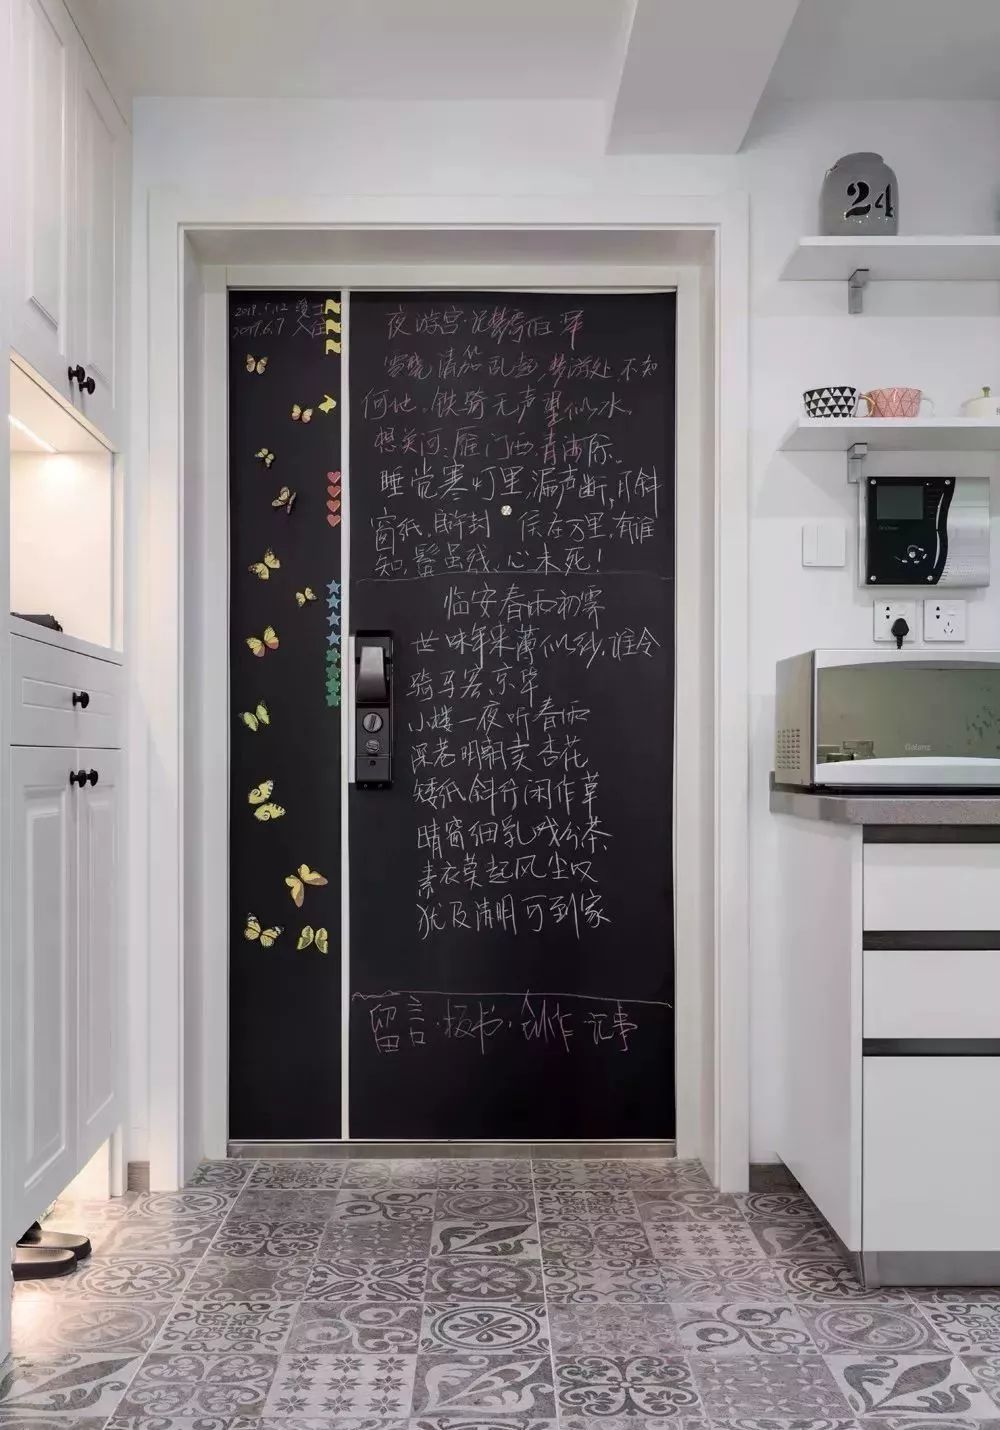 2018.5.12 爱上
2019.6.7 入住
夜游宫·记梦寄伯
雪晓清笳乱起,梦游处,不知
何地。铁骑无声望似水,
想关河,雁门西,青海际。
睡觉寒灯里,漏声断,月斜
窗纸,自许封侯在万里,有谁
知,鬓虽残,心未死!
临安春雨初霁
世味年来薄似纱,谁令
骑马客京华
小楼一夜听春雨
深巷明朝卖杏花
矮纸斜行闲作草
晴窗细乳戏分茶
素衣莫起风尘叹
犹及清明可到家
留言·板书·创作 记事
24
Galanz